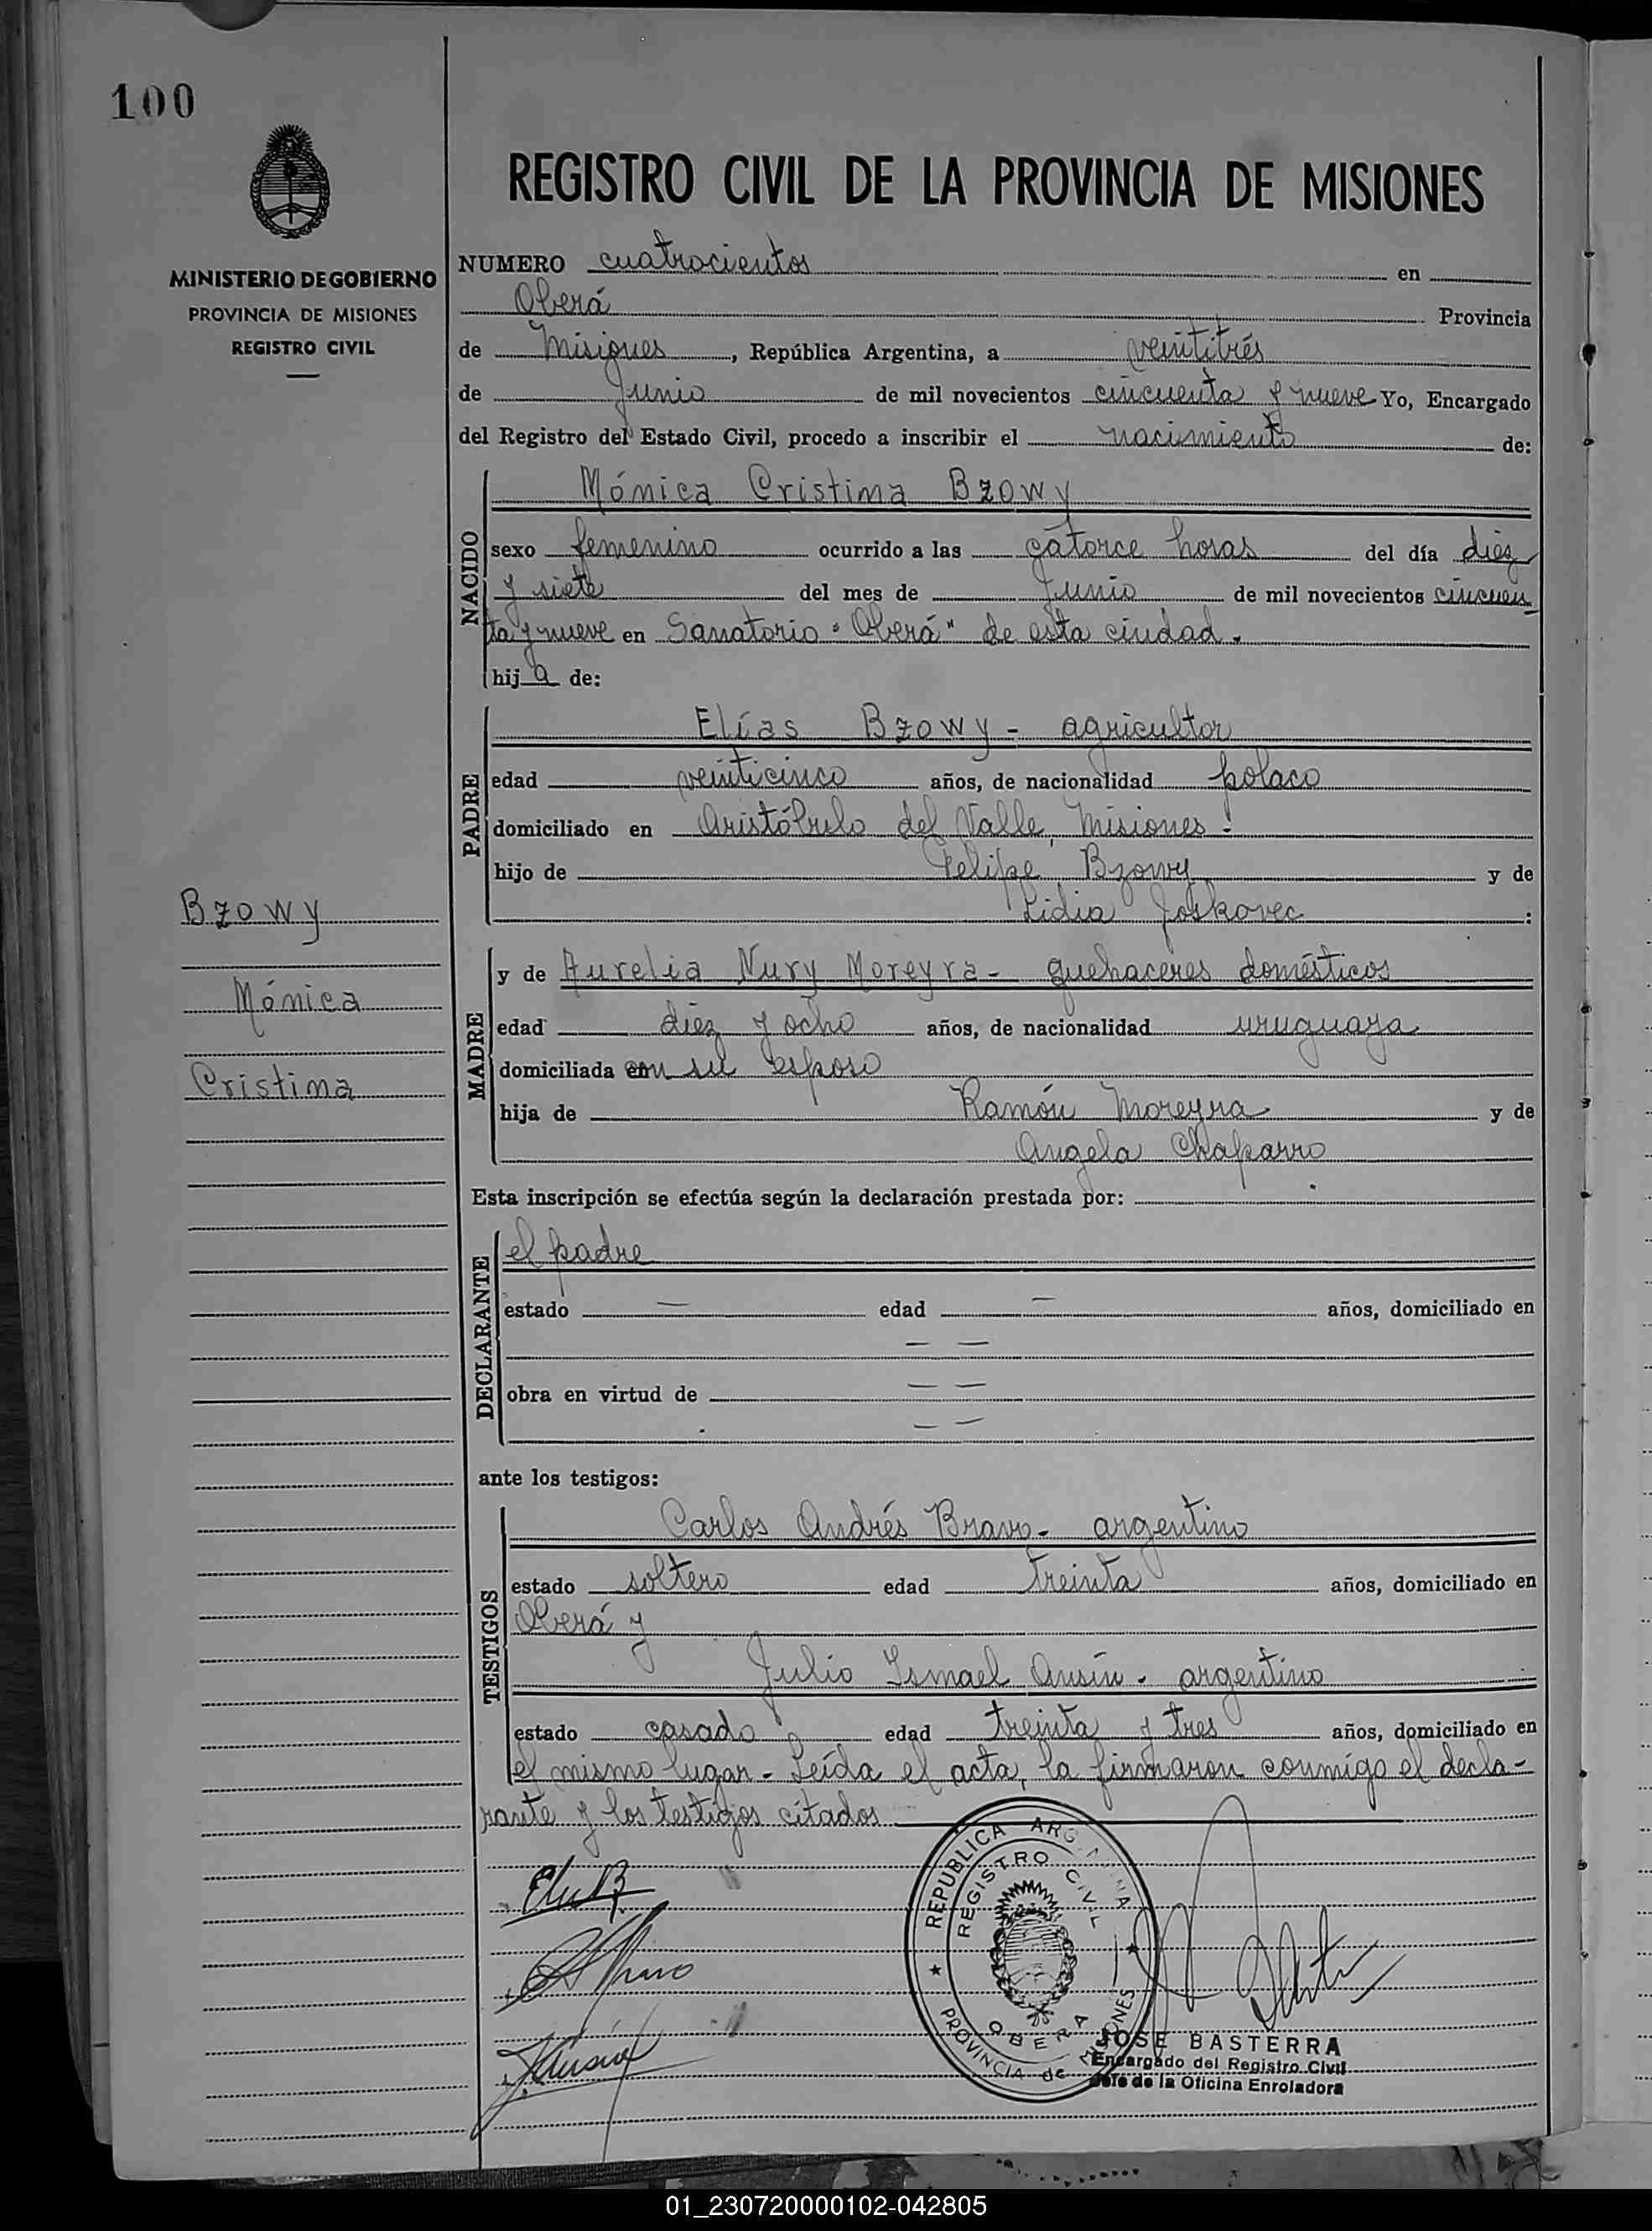 100
REGISTRO CIVIL DE LA PROVINCIA DE MISIONES
MINISTERIO DE GOBIERNO
PROVINCIA DE MISIONES
REGISTRO CIVIL
NUMERO cuatrocientos en
Oberá Provincia
de Misiones, República Argentina, a veintitrés
de Junio de mil novecientos cincuenta y nueve Yo, Encargado
del Registro del Estado Civil, procedo a inscribir el nacimiento de:
NACIDO
Mónica Cristina Bzowy
sexo femenino ocurrido a las catorce horas del día diez
y siete del mes de Junio de mil novecientos cincuen
ta y nueve en Sanatorio "Oberá" de esta ciudad.
hij a de:
PADRE
Elías Bzowy - agricultor
edad veinticinco años, de nacionalidad polaco
domiciliado en Aristóbulo del Valle, Misiones.
hijo de Felipe Bzowy y de
Lidia Joskovec :
Bzowy
Mónica
Cristina
MADRE
y de Aurelia Nury Moreyra - quehaceres domésticos
edad diez y ocho años, de nacionalidad uruguaya
domiciliada con su esposo
hija de Ramón Moreyra y de
Angela Chaparro
Esta inscripción se efectúa según la declaración prestada por:
DECLARANTE
el padre
estado — edad — años, domiciliado en
— —
obra en virtud de — —
— —
ante los testigos:
TESTIGOS
Carlos Andrés Bravo - argentino
estado soltero edad treinta años, domiciliado en
Oberá y
Julio Ismael Ausín - argentino
estado casado edad treinta y tres años, domiciliado en
el mismo lugar - Leída el acta, la firmaron conmigo el decla-
rante y los testigos citados
REPUBLICA ARGENTINA
REGISTRO CIVIL
OBERA
PROVINCIA de MISIONES
JOSE BASTERRA
Encargado del Registro Civil
Jefe de la Oficina Enroladora
01_230720000102-042805